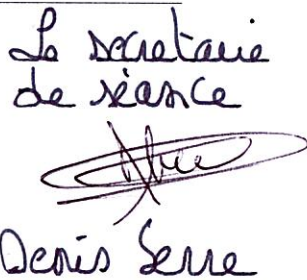 Le secretaire
de séance
Denis Serre